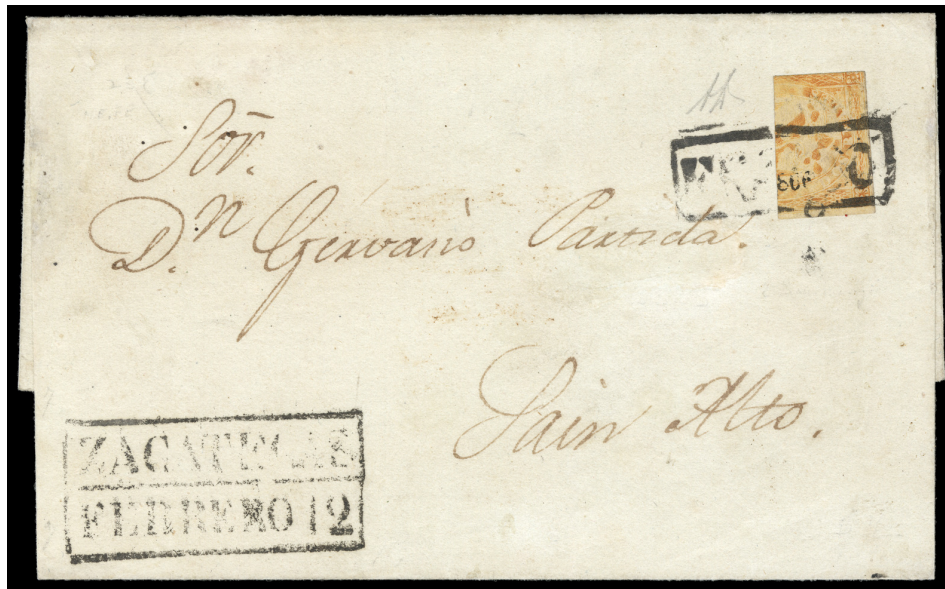 Sor.
Dn. Gervasio Partida.
Sain Alto.
ZACATECAS
FEBRERO 12